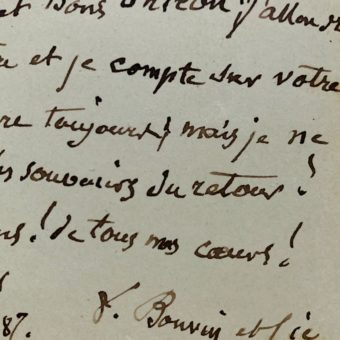 et bons
et je compte sur votre
re toujours; mais je ne
souvenirs du retour!
ns! de tous mes cœurs!
87. F. Bonvin et Cie